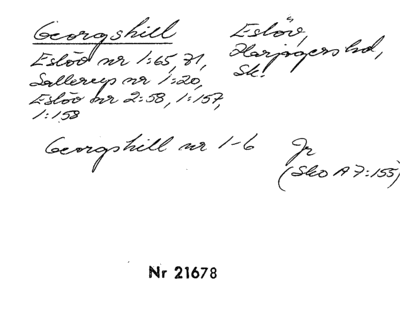 Georgshill Eslöv,
Eslöv nr 1:65, 71, Harjagers hd,
Sallerup nr 1:20, Sk.
Eslöv nr 2:58, 1:157,
1:158
Georgshill nr 1-6 Jr
(Sko A 7:155)
Nr 21678